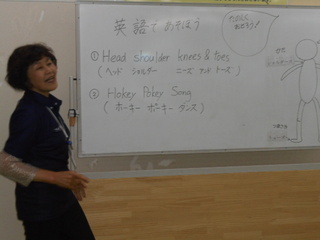 英語であそぼう
① Head shoulder knees & toes
(ヘッド ショルダー ニーズ アンド トーズ)
② Hokey Pokey Song
(ホーキー ポーキー ダンス)